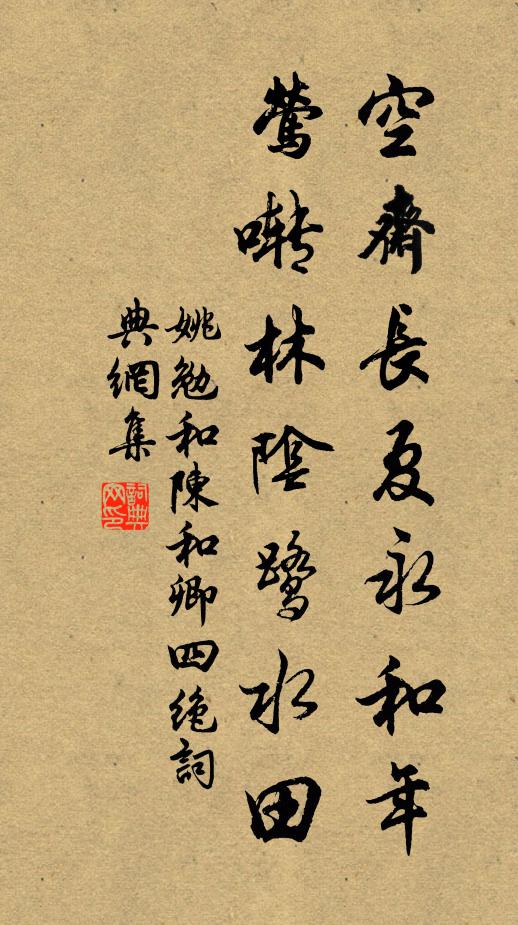 空齋長夏永和年
鶯囀林陰鷺水田
姚勉和陳和卿四絶詞
典網集
詞典网印